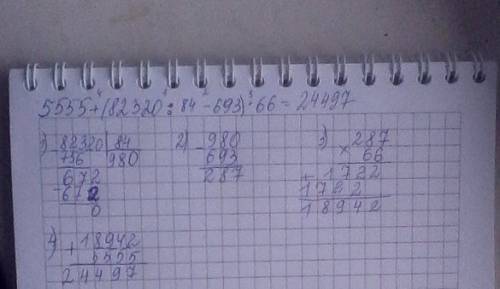 5555+(82320:84-693)·66=24497
1) 82320 | 84
756 | 980
672
672
0
2) 980
- 693
287
3) 287
× 66
+ 1722
1722
18942
4) 18942
+ 5555
24497